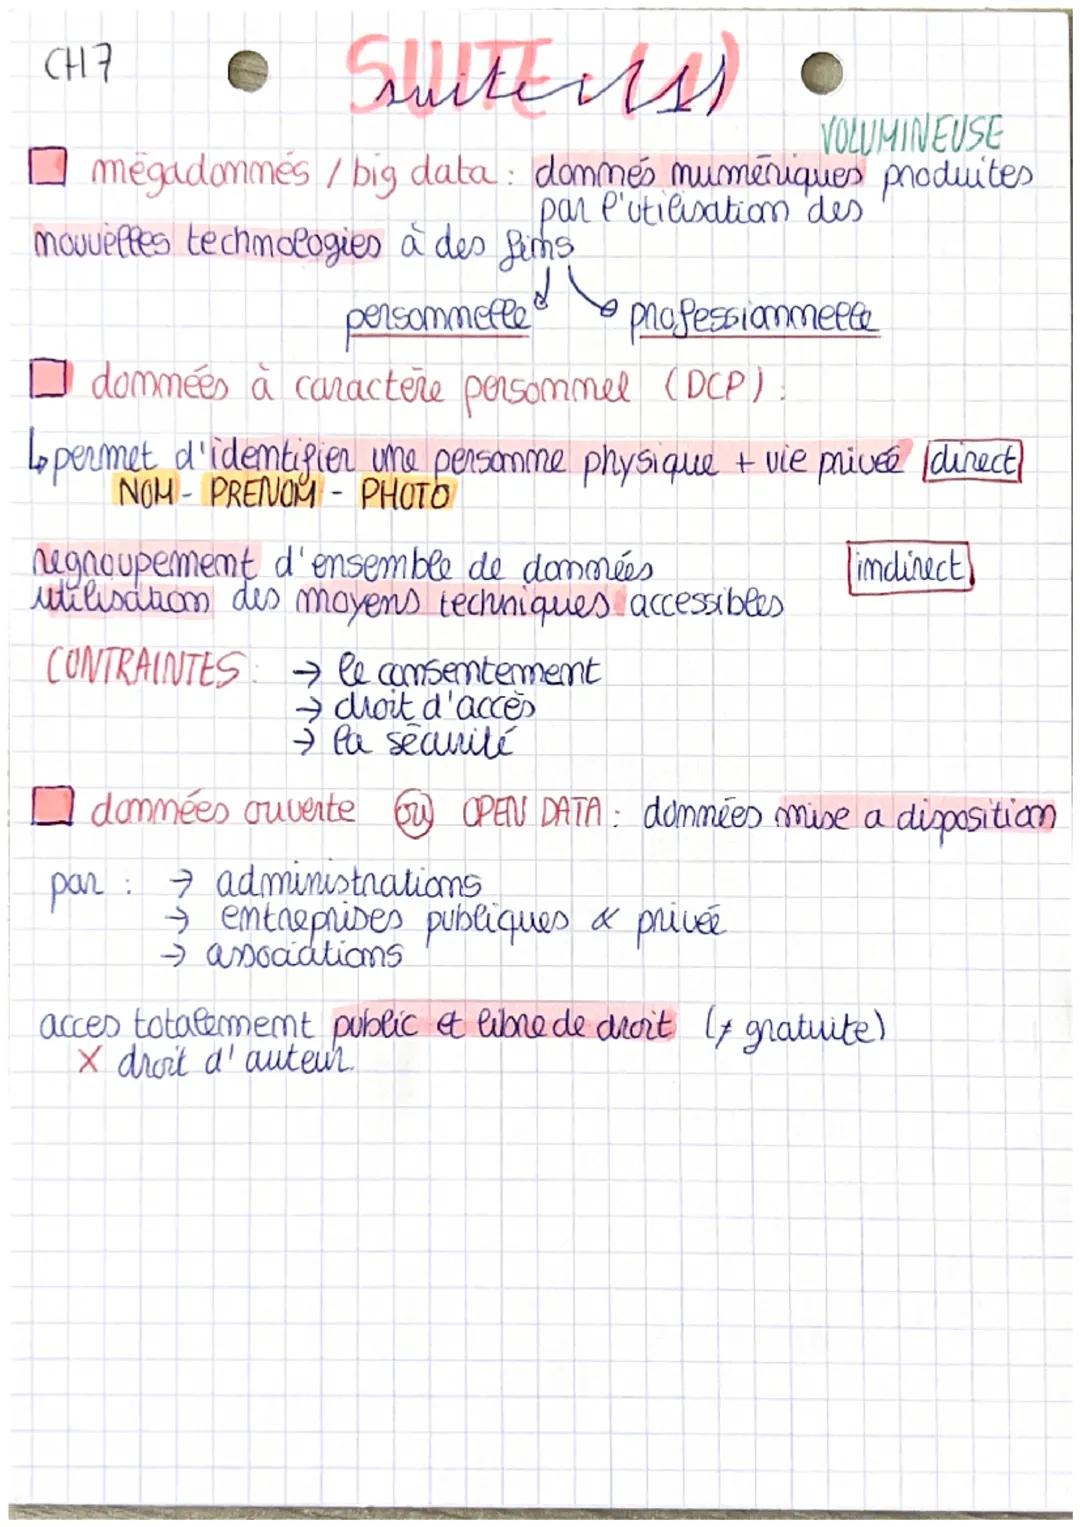 CH7
SUITE (1)
suite (1)
VOLUMINEUSE
mégadonnés / big data : donnés numériques produites
par l'utilisation des
nouvelles technologies à des fins
personnelle professionnelle
données à caractère personnel (DCP) :
↳ permet d'identifier une personne physique + vie privée direct
NOM - PRENOM - PHOTO
regroupement d'ensemble de données indirect
utilisation des moyens techniques accessibles
CONTRAINTES : → le consentement
→ droit d'accès
→ la sécurité
données ouverte ou OPEN DATA : données mise a disposition
par : → administrations
→ entreprises publiques & privée
→ associations
acces totalement public et libre de droit (≠ gratuite)
X droit d'auteur.